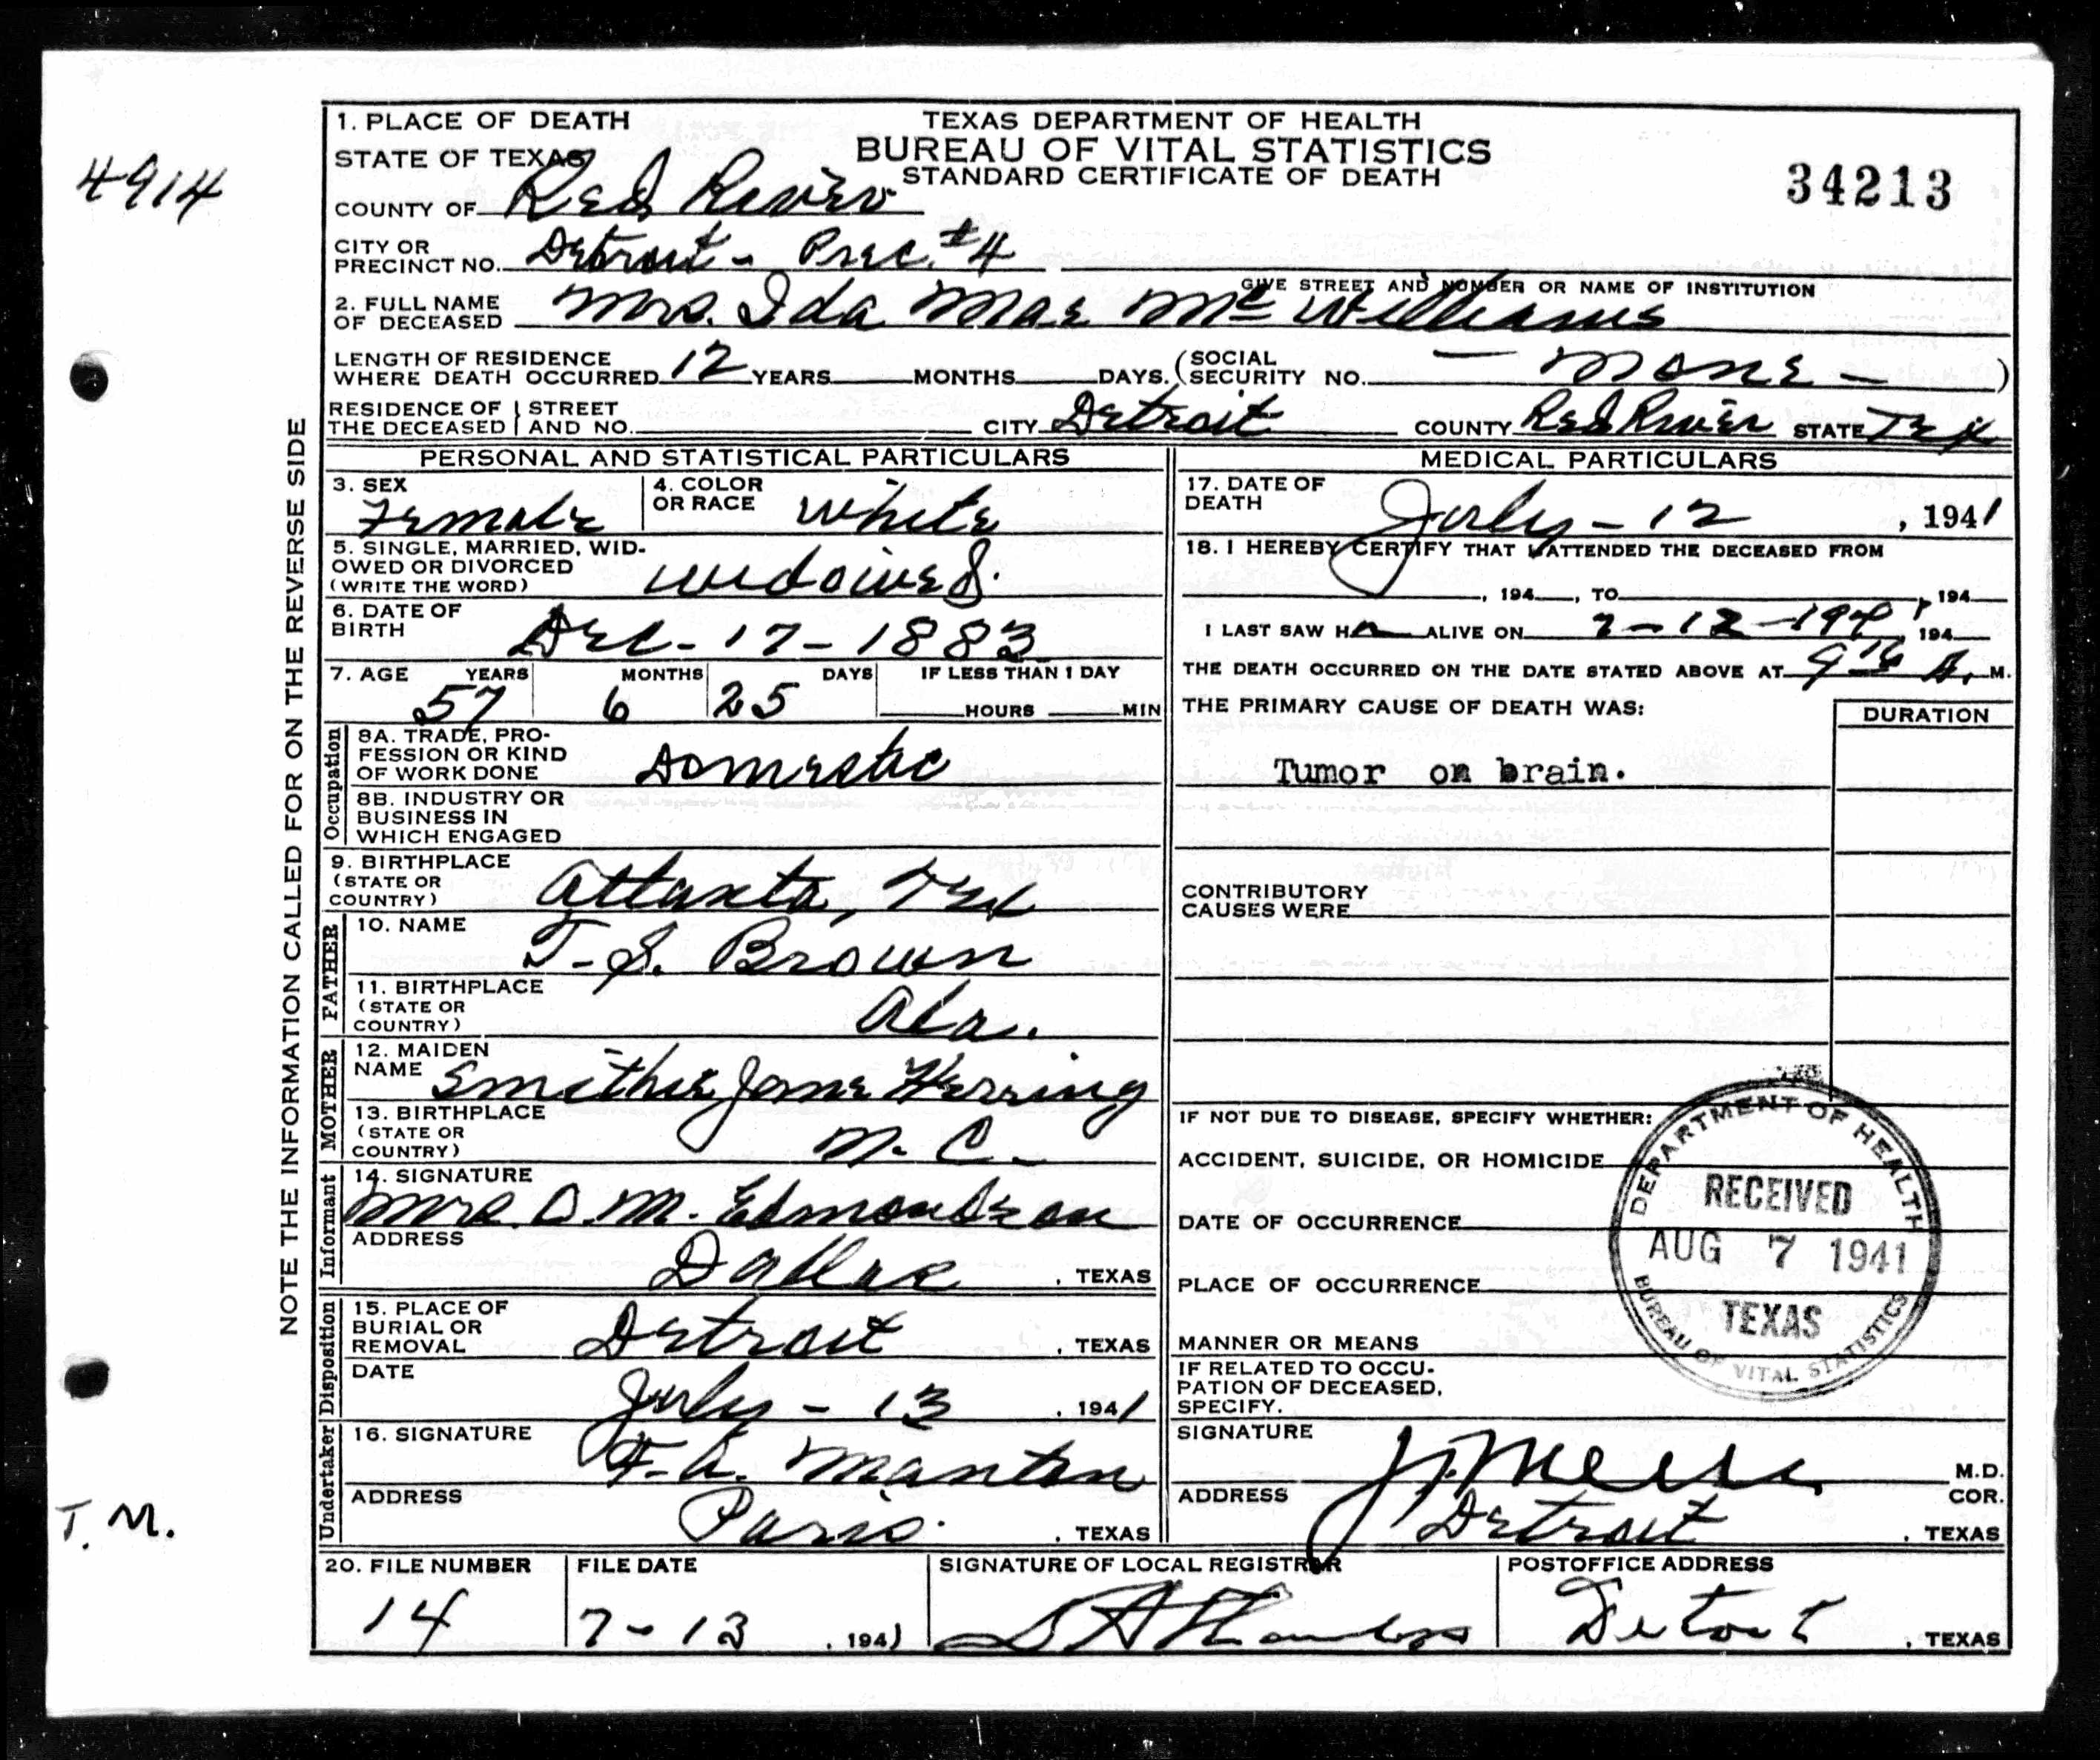 4914
NOTE THE INFORMATION CALLED FOR ON THE REVERSE SIDE
1. PLACE OF DEATH
STATE OF TEXAS
COUNTY OF Red River
CITY OR PRECINCT NO. Detroit - Prec. #4
TEXAS DEPARTMENT OF HEALTH
BUREAU OF VITAL STATISTICS
STANDARD CERTIFICATE OF DEATH
34213
GIVE STREET AND NUMBER OR NAME OF INSTITUTION
2. FULL NAME OF DECEASED Mrs. Ida Mae McWilliams
LENGTH OF RESIDENCE WHERE DEATH OCCURRED 12 YEARS MONTHS DAYS. (SOCIAL SECURITY NO. - None - )
RESIDENCE OF THE DECEASED STREET AND NO. CITY Detroit COUNTY Red River STATE Tex
PERSONAL AND STATISTICAL PARTICULARS
3. SEX Female 4. COLOR OR RACE White
5. SINGLE, MARRIED, WIDOWED OR DIVORCED (WRITE THE WORD) widowed.
6. DATE OF BIRTH Dec - 17 - 1883
7. AGE YEARS 57 MONTHS 6 DAYS 25 IF LESS THAN 1 DAY HOURS MIN
Occupation
8A. TRADE, PROFESSION OR KIND OF WORK DONE Domestic
8B. INDUSTRY OR BUSINESS IN WHICH ENGAGED
9. BIRTHPLACE (STATE OR COUNTRY) Atlanta, Tex
FATHER
10. NAME T. S. Brown
11. BIRTHPLACE (STATE OR COUNTRY) Ala.
MOTHER
12. MAIDEN NAME Smithie Jane Herring
13. BIRTHPLACE (STATE OR COUNTRY) N. C.
Informant
14. SIGNATURE Mrs. O. M. Edmondson
ADDRESS Dallas, TEXAS
Disposition
15. PLACE OF BURIAL OR REMOVAL Detroit, TEXAS
DATE July - 13, 1941
Undertaker
16. SIGNATURE F. A. Manton
ADDRESS Paris, TEXAS
MEDICAL PARTICULARS
17. DATE OF DEATH July - 12, 1941
18. I HEREBY CERTIFY THAT I ATTENDED THE DECEASED FROM
, 194 , TO , 194
I LAST SAW H ALIVE ON 7-12-1941, 194
THE DEATH OCCURRED ON THE DATE STATED ABOVE AT A. M.
THE PRIMARY CAUSE OF DEATH WAS: DURATION
Tumor on brain.
CONTRIBUTORY CAUSES WERE
IF NOT DUE TO DISEASE, SPECIFY WHETHER:
ACCIDENT, SUICIDE, OR HOMICIDE
DATE OF OCCURRENCE
PLACE OF OCCURRENCE
MANNER OR MEANS
IF RELATED TO OCCUPATION OF DECEASED, SPECIFY.
DEPARTMENT OF HEALTH
RECEIVED
AUG 7 1941
TEXAS
BUREAU OF VITAL STATISTICS
SIGNATURE M.D. COR.
ADDRESS Detroit, TEXAS
T. M.
20. FILE NUMBER 14
FILE DATE 7-13, 1941
SIGNATURE OF LOCAL REGISTRAR
POSTOFFICE ADDRESS Detroit, TEXAS